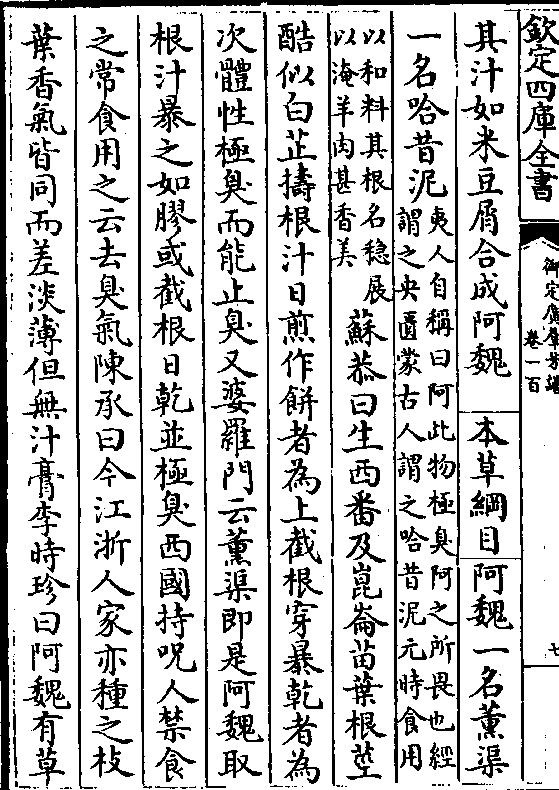 欽定四庫全書
御定廣羣芳譜
卷一百
七
其汁如米豆屑合成阿魏 本草綱目 阿魏一名薰渠
一名哈昔泥
夷人自稱曰阿此物極臭阿之所畏也經
謂之央匱蒙古人謂之哈昔泥元時食用
以和料其根名穏展
以淹羊肉甚香美
蘇恭曰生西番及崑崙苗葉根莖
酷似白芷擣根汁日煎作餅者為上截根穿暴乾者為
次體性極臭而能止臭又婆羅門云薰渠即是阿魏取
根汁暴之如膠或截根日乾並極臭西國持呪人禁食
之常食用之云去臭氣陳承曰今江浙人家亦種之枝
葉香氣皆同而差淡薄但無汁膏李時珍曰阿魏有草